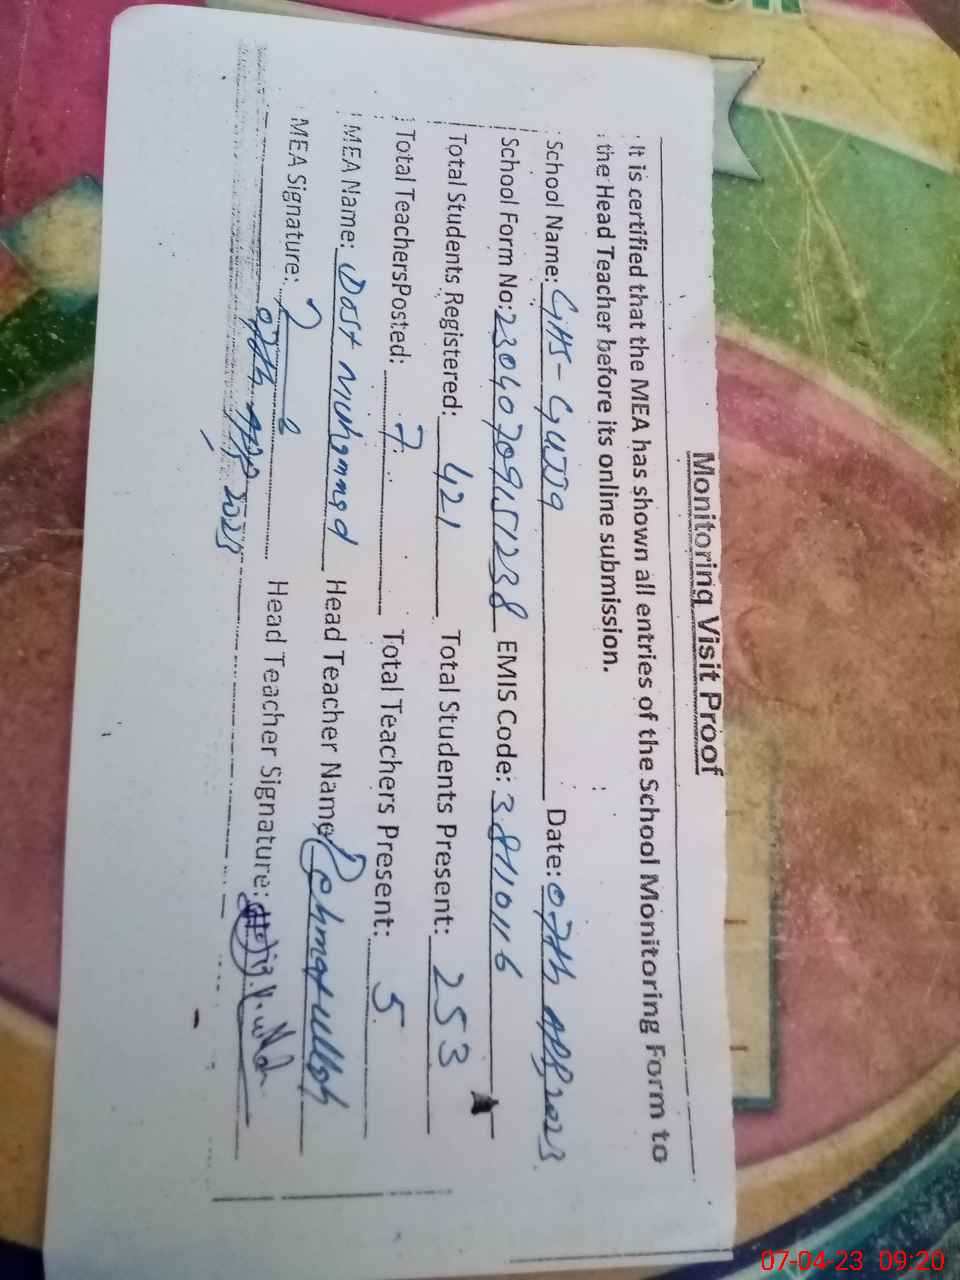 Monitoring Visit Proof
It is certified that the MEA has shown all entries of the School Monitoring Form to
the Head Teacher before its online submission.
School Name: GHS- Date: 07th APR 2023
School Form No: EMIS Code:
Total Students Registered: 421 Total Students Present: 253
Total TeachersPosted: 7 Total Teachers Present: 5
MEA Name: Dost Muhammad Head Teacher Name Rehmatullah
MEA Signature: Head Teacher Signature:
07th APR 2023
07-04-23 09:20